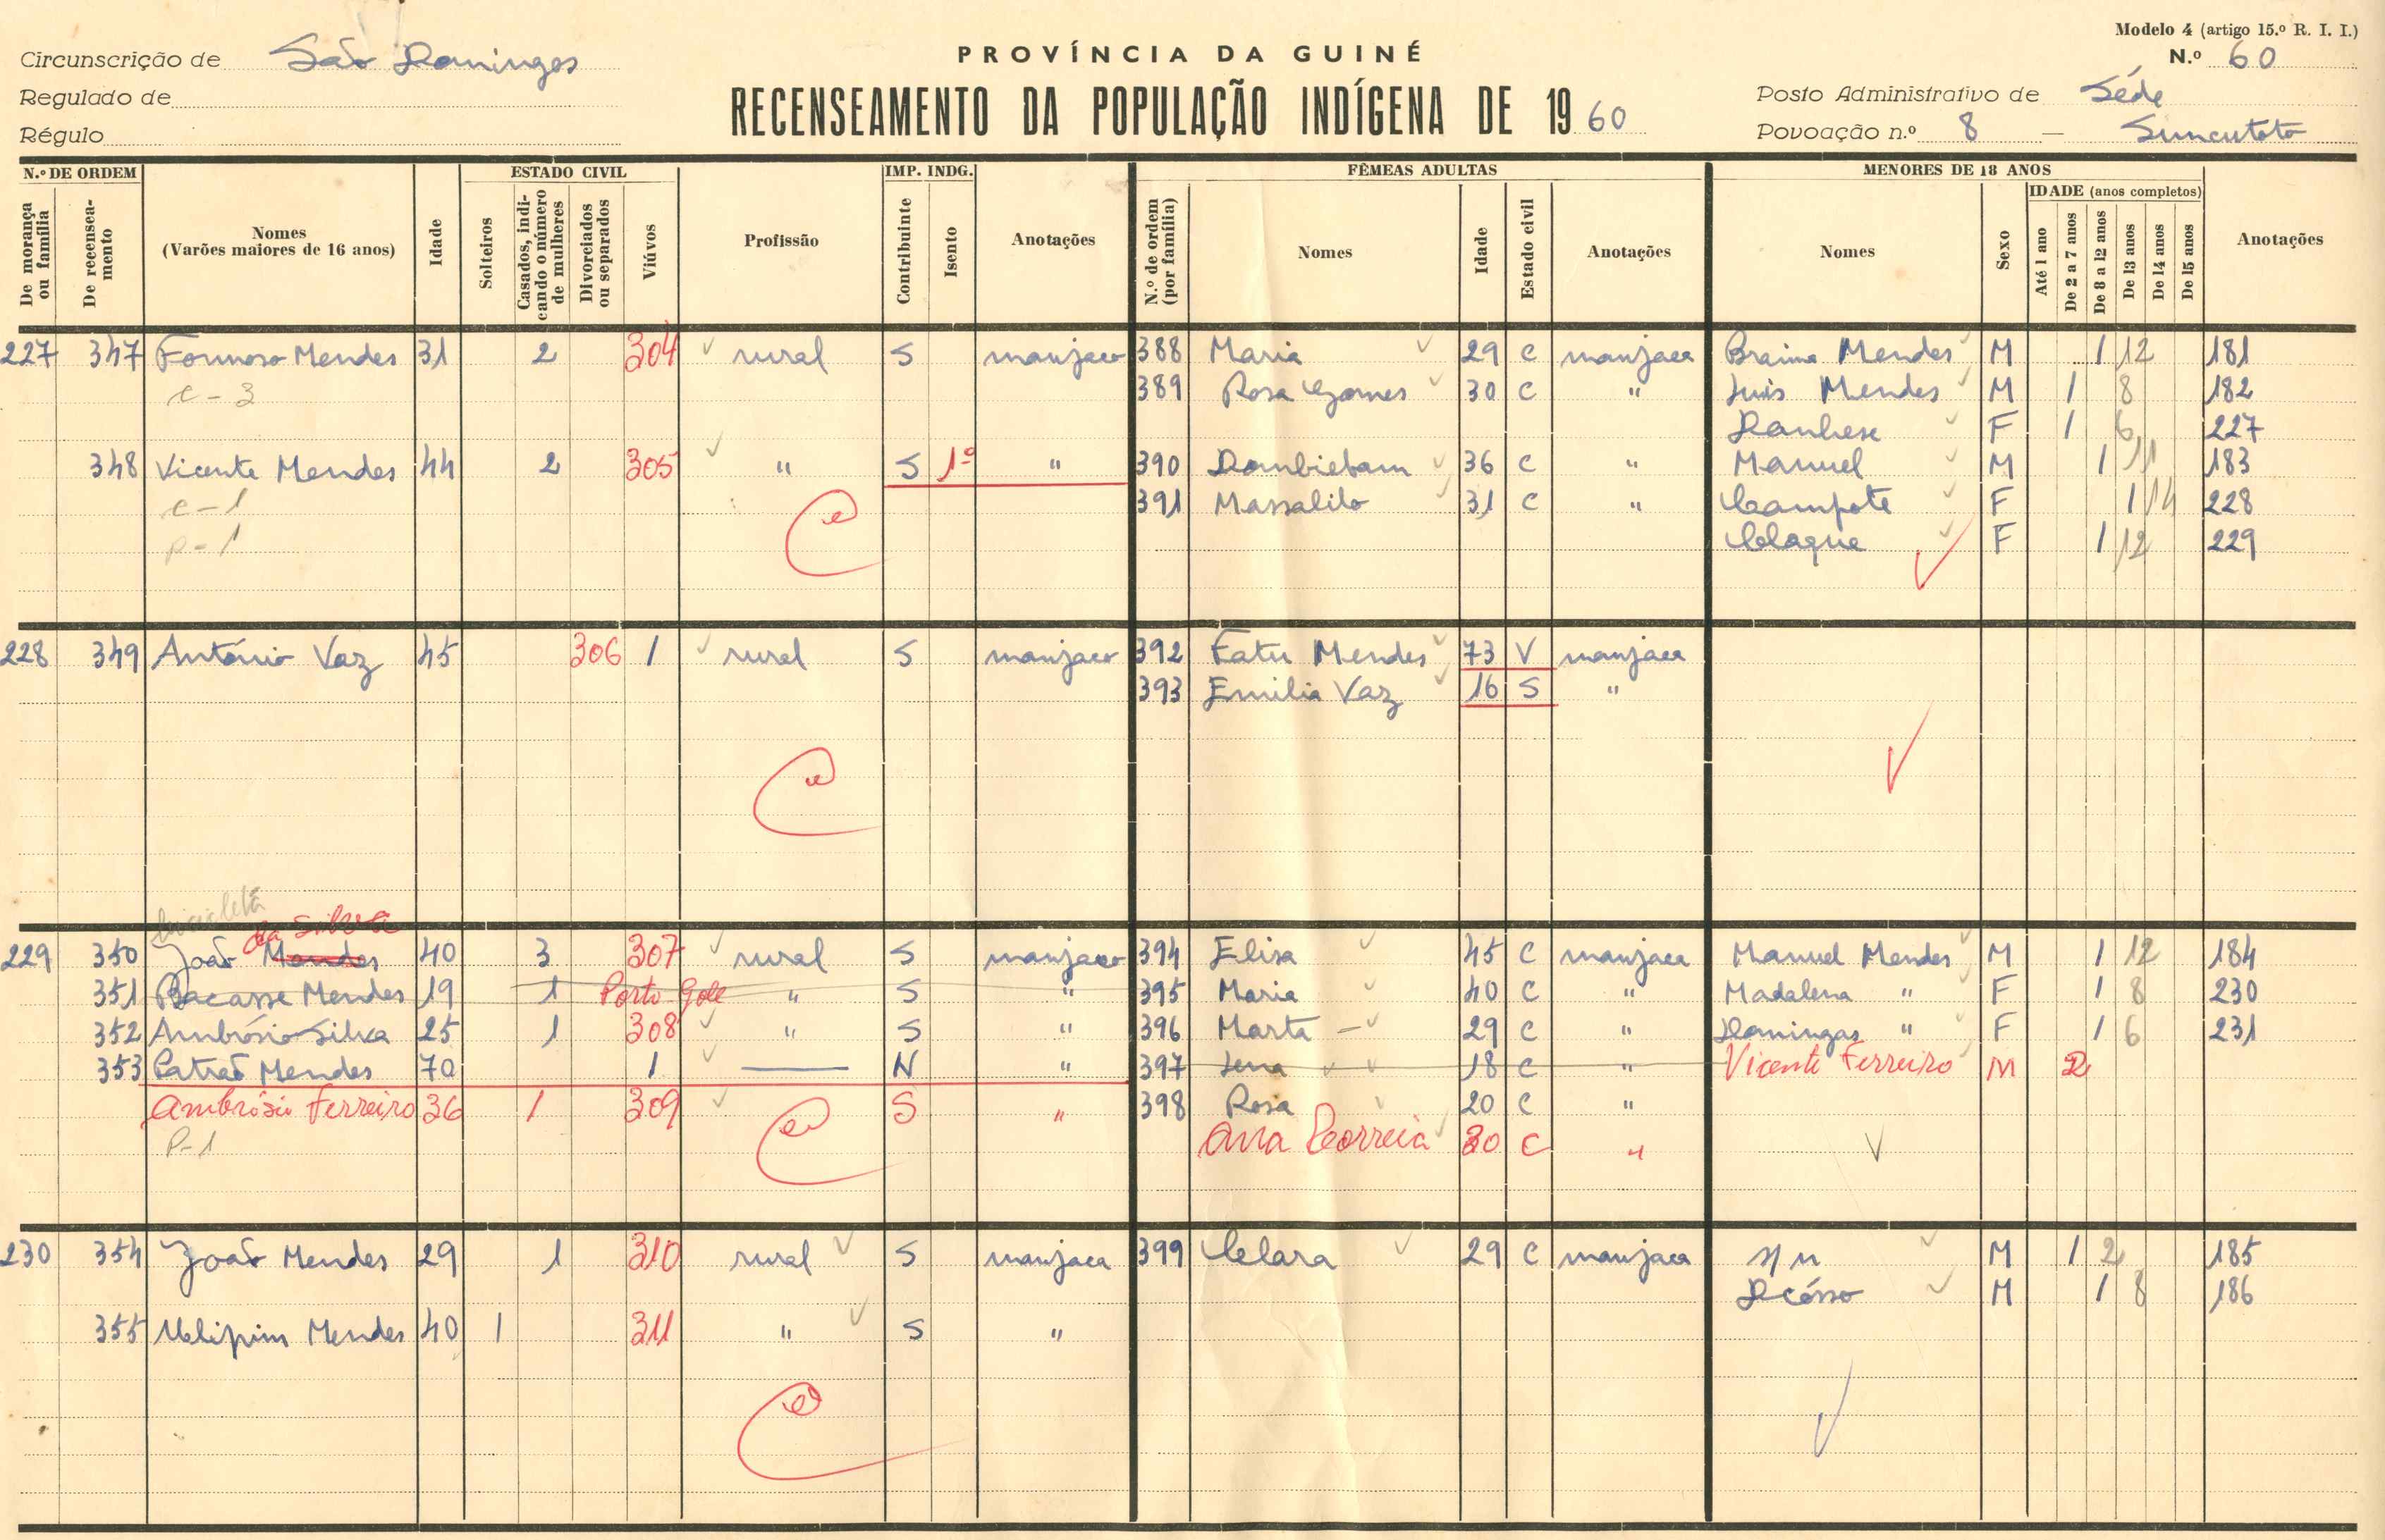 Modelo 4 (artigo 15.º R. I. I.)
Circunscrição de São Domingos
PROVÍNCIA DA GUINÉ
N.º 60
Regulado de
RECENSEAMENTO DA POPULAÇÃO INDÍGENA DE 1960
Posto Administrativo de Séde
Régulo
Povoação n.º 8 — Suncutoto
N.º DE ORDEM ESTADO CIVIL IMP. INDG. FÊMEAS ADULTAS MENORES DE 18 ANOS
IDADE (anos completos)
De morança ou família De recenseamento Nomes (Varões maiores de 16 anos) Idade Solteiros Casados, indicando o número de mulheres Divorciados ou separados Viúvos Profissão Contribuinte Isento Anotações N.º de ordem (por família) Nomes Idade Estado civil Anotações Nomes Sexo Até 1 ano De 2 a 7 anos De 8 a 12 anos De 13 anos De 14 anos De 15 anos Anotações
227 347 Formoso Mendes 31 2 304 rural S manjaco 388 Maria 29 C manjaca Braima Mendes M 1 12 181
c - 3 389 Rosa Gomes 30 C " Luis Mendes M 1 8 182
F 1 6 227
348 Vicente Mendes 44 2 305 " S 1º " 390 Dombiebam 36 C " Manuel M 1 11 183
c - 1 391 Massalito 31 C " Campote F 1 14 228
P - 1 Claque F 1 12 229
228 349 António Vaz 45 306 1 rural S manjaco 392 Fatu Mendes 73 V manjaca
393 Emilia Vaz 16 S "
bicicleta da Silva
229 350 João Mendes 40 3 307 rural S manjaco 394 Elisa 45 C manjaca Manuel Mendes M 1 12 184
351 Bacasse Mendes 19 1 Porto Gole " S " 395 Maria 40 C " Madalena " F 1 8 230
352 Ambrósio Silva 25 1 308 " S " 396 Marta 29 C " Domingas " F 1 6 231
353 Patrão Mendes 70 1 — N " 397 18 C " Vicente Ferreiro M 2
Ambrósio Ferreiro 36 1 309 S " 398 Rosa 20 C "
P-1 Ana Correia 30 C "
230 354 João Mendes 29 1 310 rural S manjaca 399 Clara 29 C manjaca s/n M 1 2 185
M 1 8 186
355 Mendes 40 1 311 " S "